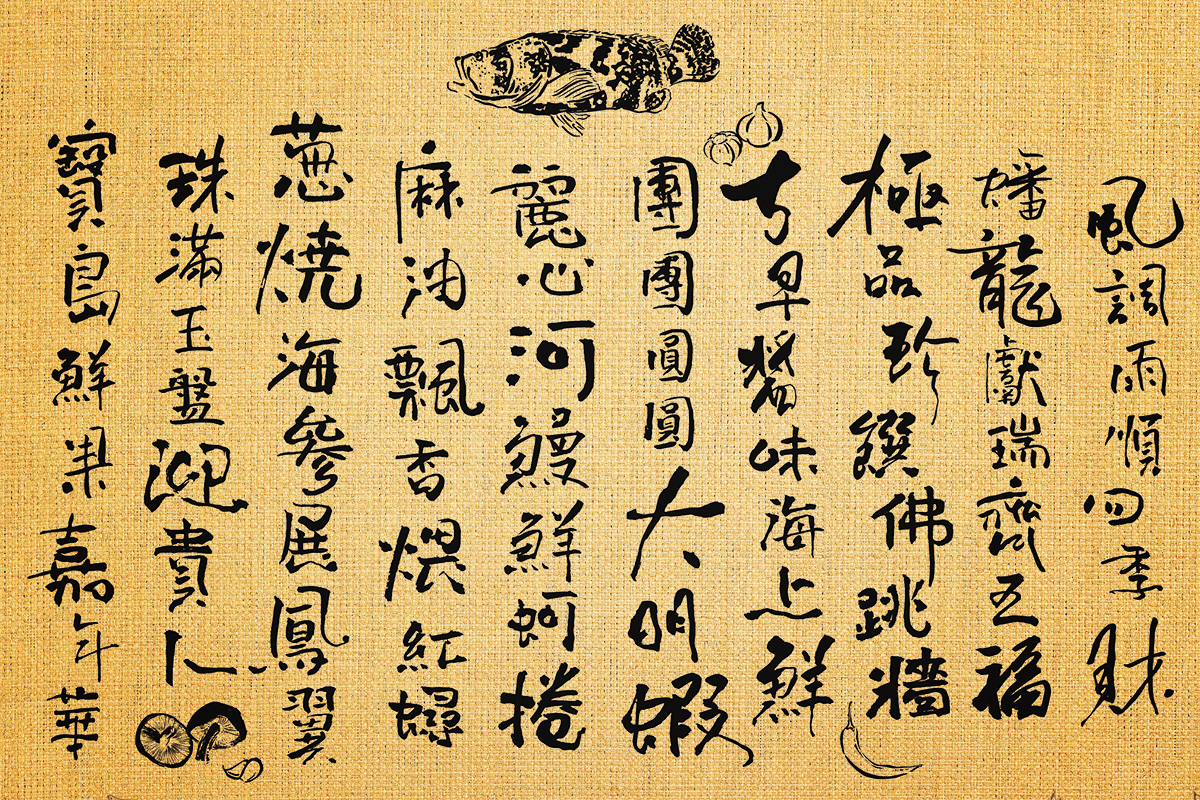 風調雨順四季財
蟠龍獻瑞齊五福
極品珍饌佛跳牆
古早醬味海上鮮
團團圓圓大明蝦
麗心河鰻鮮蚵捲
麻油飄香煨紅蟳
葱燒海參展鳳翼
珠滿玉盤迎貴人
寶島鮮果嘉年華